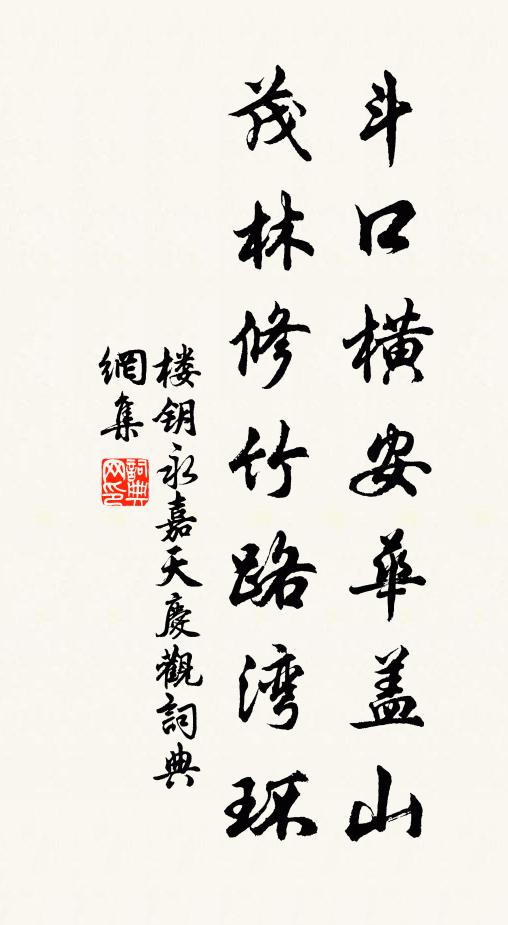 斗口横安華盖山
茂林修竹路湾环
楼钥永嘉天慶觀詞典
網集
詞典网印